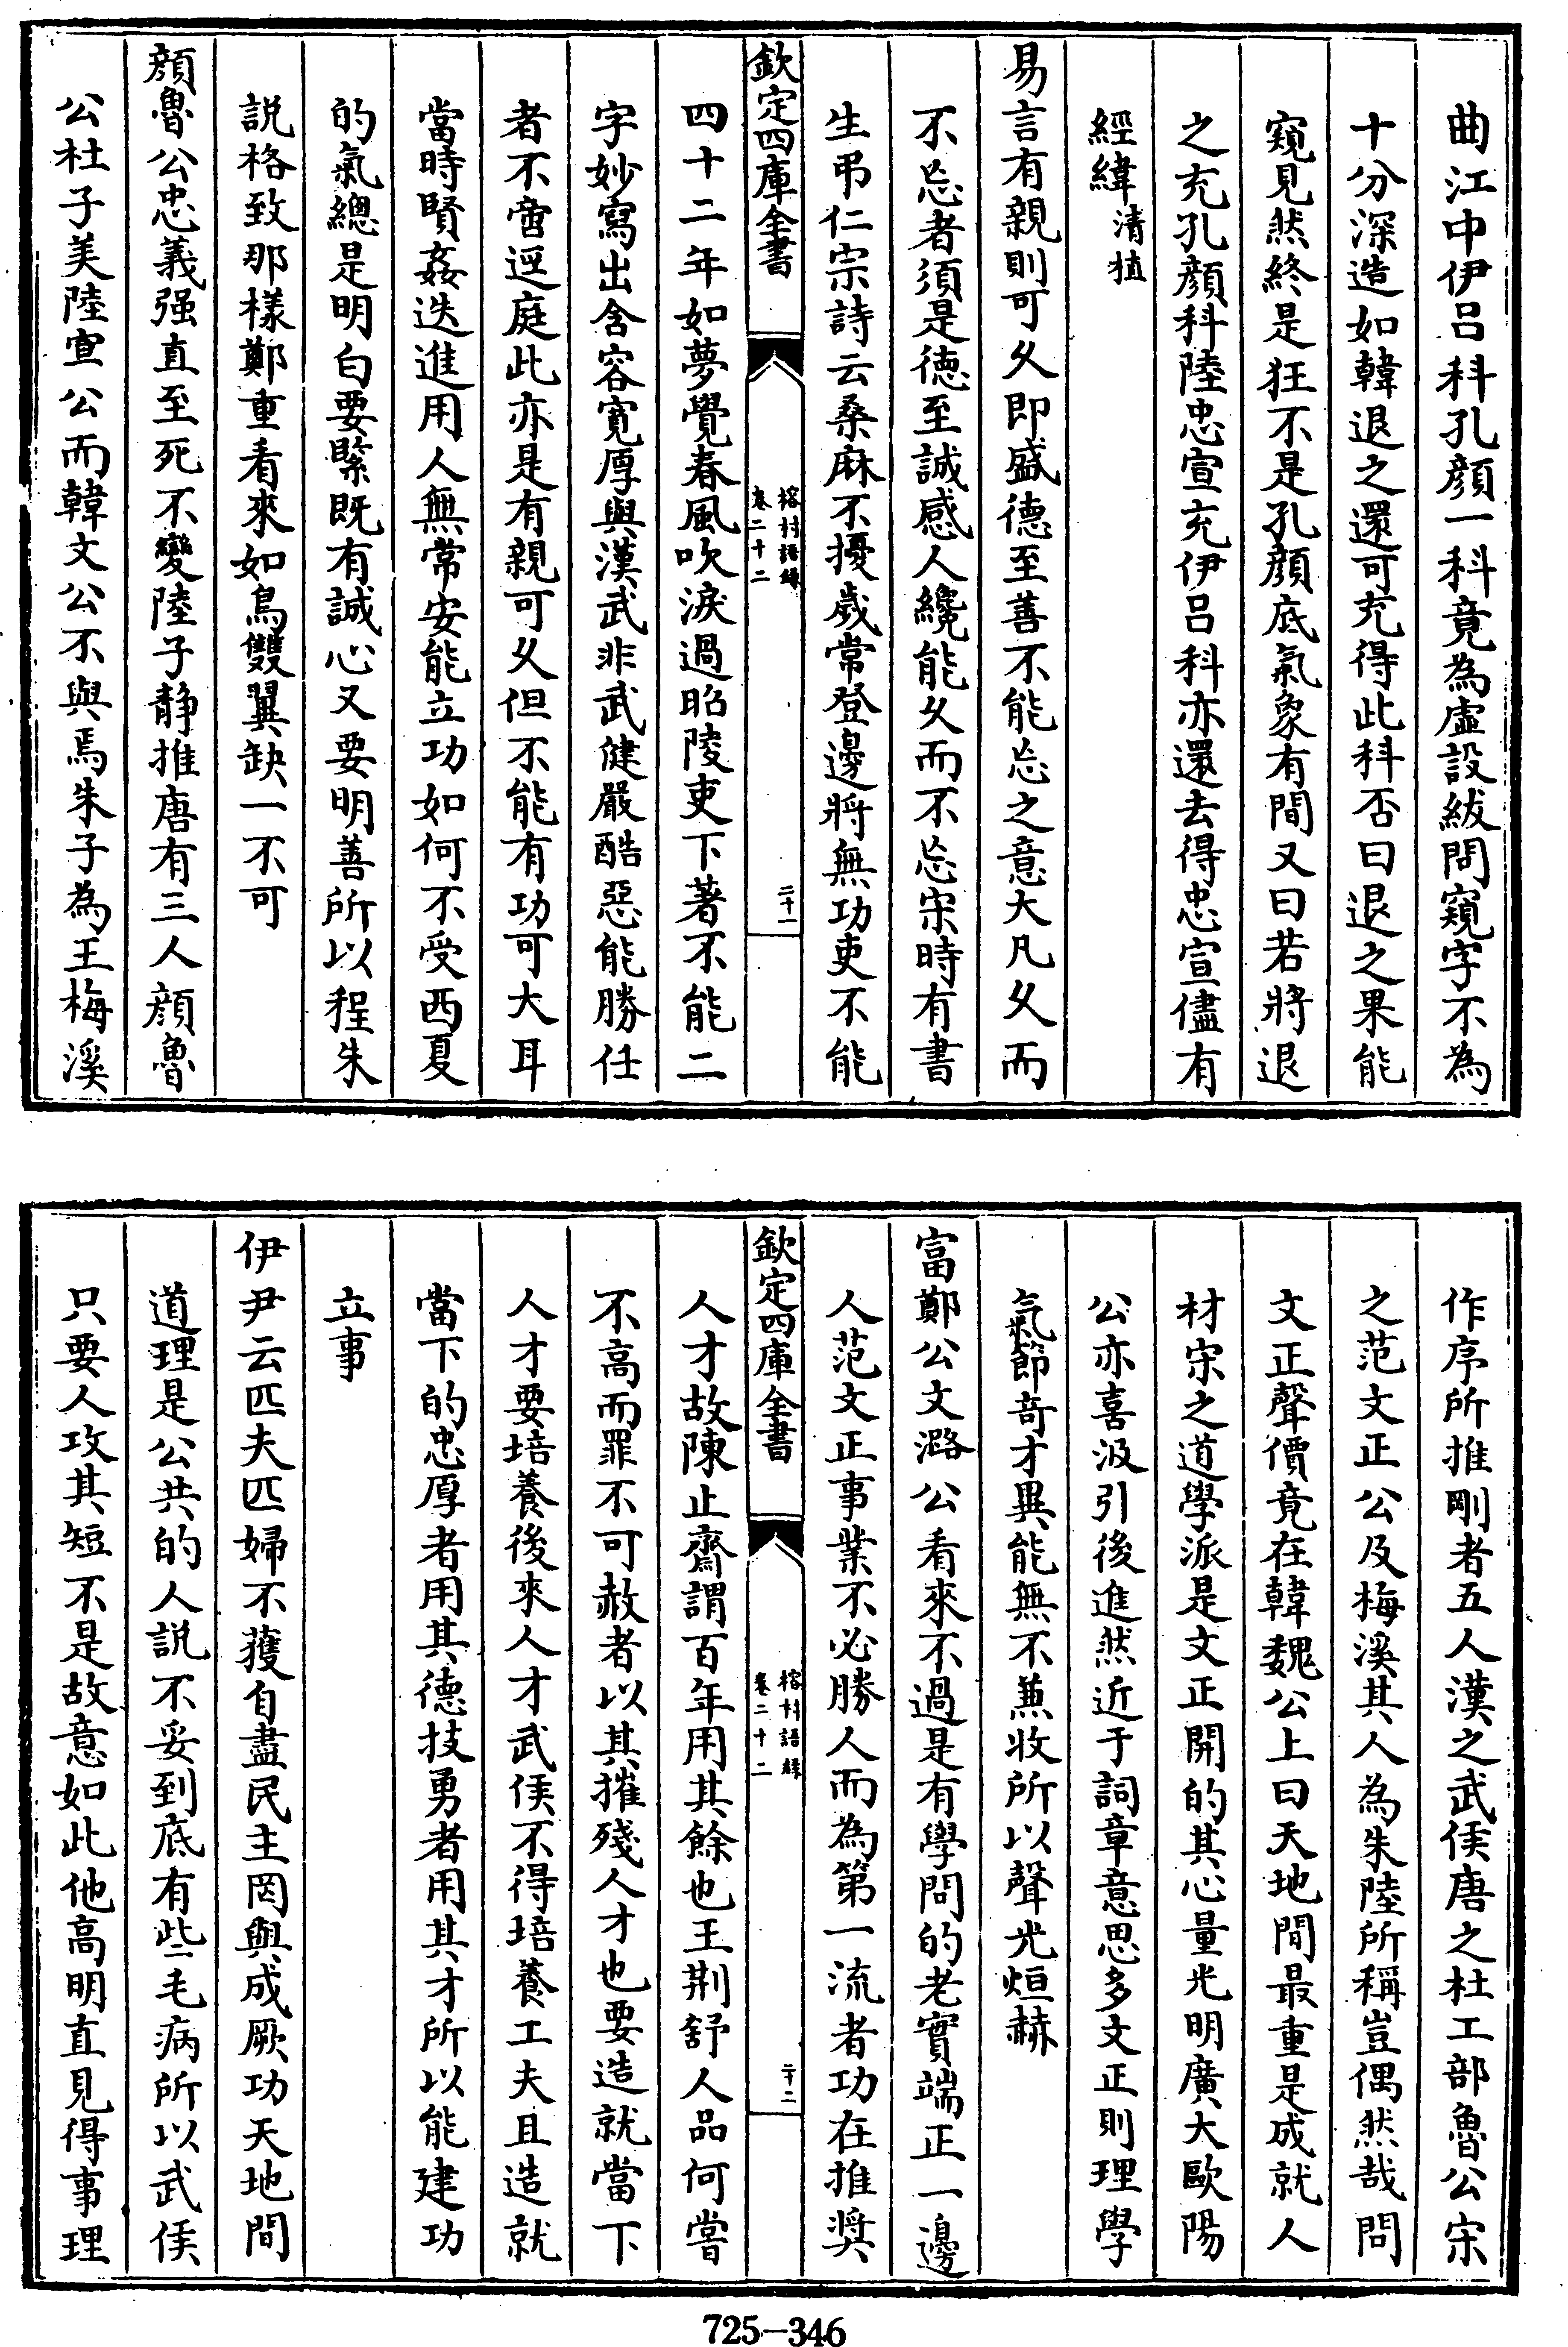 曲江中伊吕科孔顔一科竟為虚設紱問窺字不為
十分深造如韓退之還可充得此科否曰退之果能
窺見然終是狂不是孔顔底氣象有間又曰若將退
之充孔顔科陸忠宣充伊吕科亦還去得忠宣儘有
經緯清植
易言有親則可久即盛德至善不能忘之意大凡久而
不忘者須是德至誠感人纔能久而不忘宋時有書
生弔仁宗詩云桑麻不擾歲常登邊將無功吏不能
欽定四庫全書
榕村語録
卷二十二
二十一
四十二年如夢覺春風吹淚過昭陵吏下著不能二
字妙寫出含容寛厚與漢武非武健嚴酷惡能勝任
者不啻逕庭此亦是有親可久但不能有功可大耳
當時賢姦迭進用人無常安能立功如何不受西夏
的氣總是明白要緊既有誠心又要明善所以程朱
説格致那樣鄭重看來如鳥雙翼缺一不可
顔魯公忠義强直至死不變陸子靜推唐有三人顔魯
公杜子美陸宣公而韓文公不與焉朱子為王梅溪
作序所推剛者五人漢之武侯唐之杜工部魯公宋
之范文正公及梅溪其人為朱陸所稱豈偶然哉問
文正聲價竟在韓魏公上曰天地間最重是成就人
材宋之道學派是文正開的其心量光明廣大歐陽
公亦喜汲引後進然近于詞章意思多文正則理學
氣節奇才異能無不兼收所以聲光烜赫
富鄭公文潞公看來不過是有學問的老實端正一邊
人范文正事業不必勝人而為第一流者功在推奬
欽定四庫全書
榕村語録
卷二十二
二十二
人才故陳止齋謂百年用其餘也王荆舒人品何嘗
不高而罪不可赦者以其摧殘人才也要造就當下
人才要培養後來人才武侯不得培養工夫且造就
當下的忠厚者用其德技勇者用其才所以能建功
立事
伊尹云匹夫匹婦不獲自盡民主罔與成厥功天地間
道理是公共的人説不妥到底有些毛病所以武侯
只要人攻其短不是故意如此他高明直見得事理
725—346